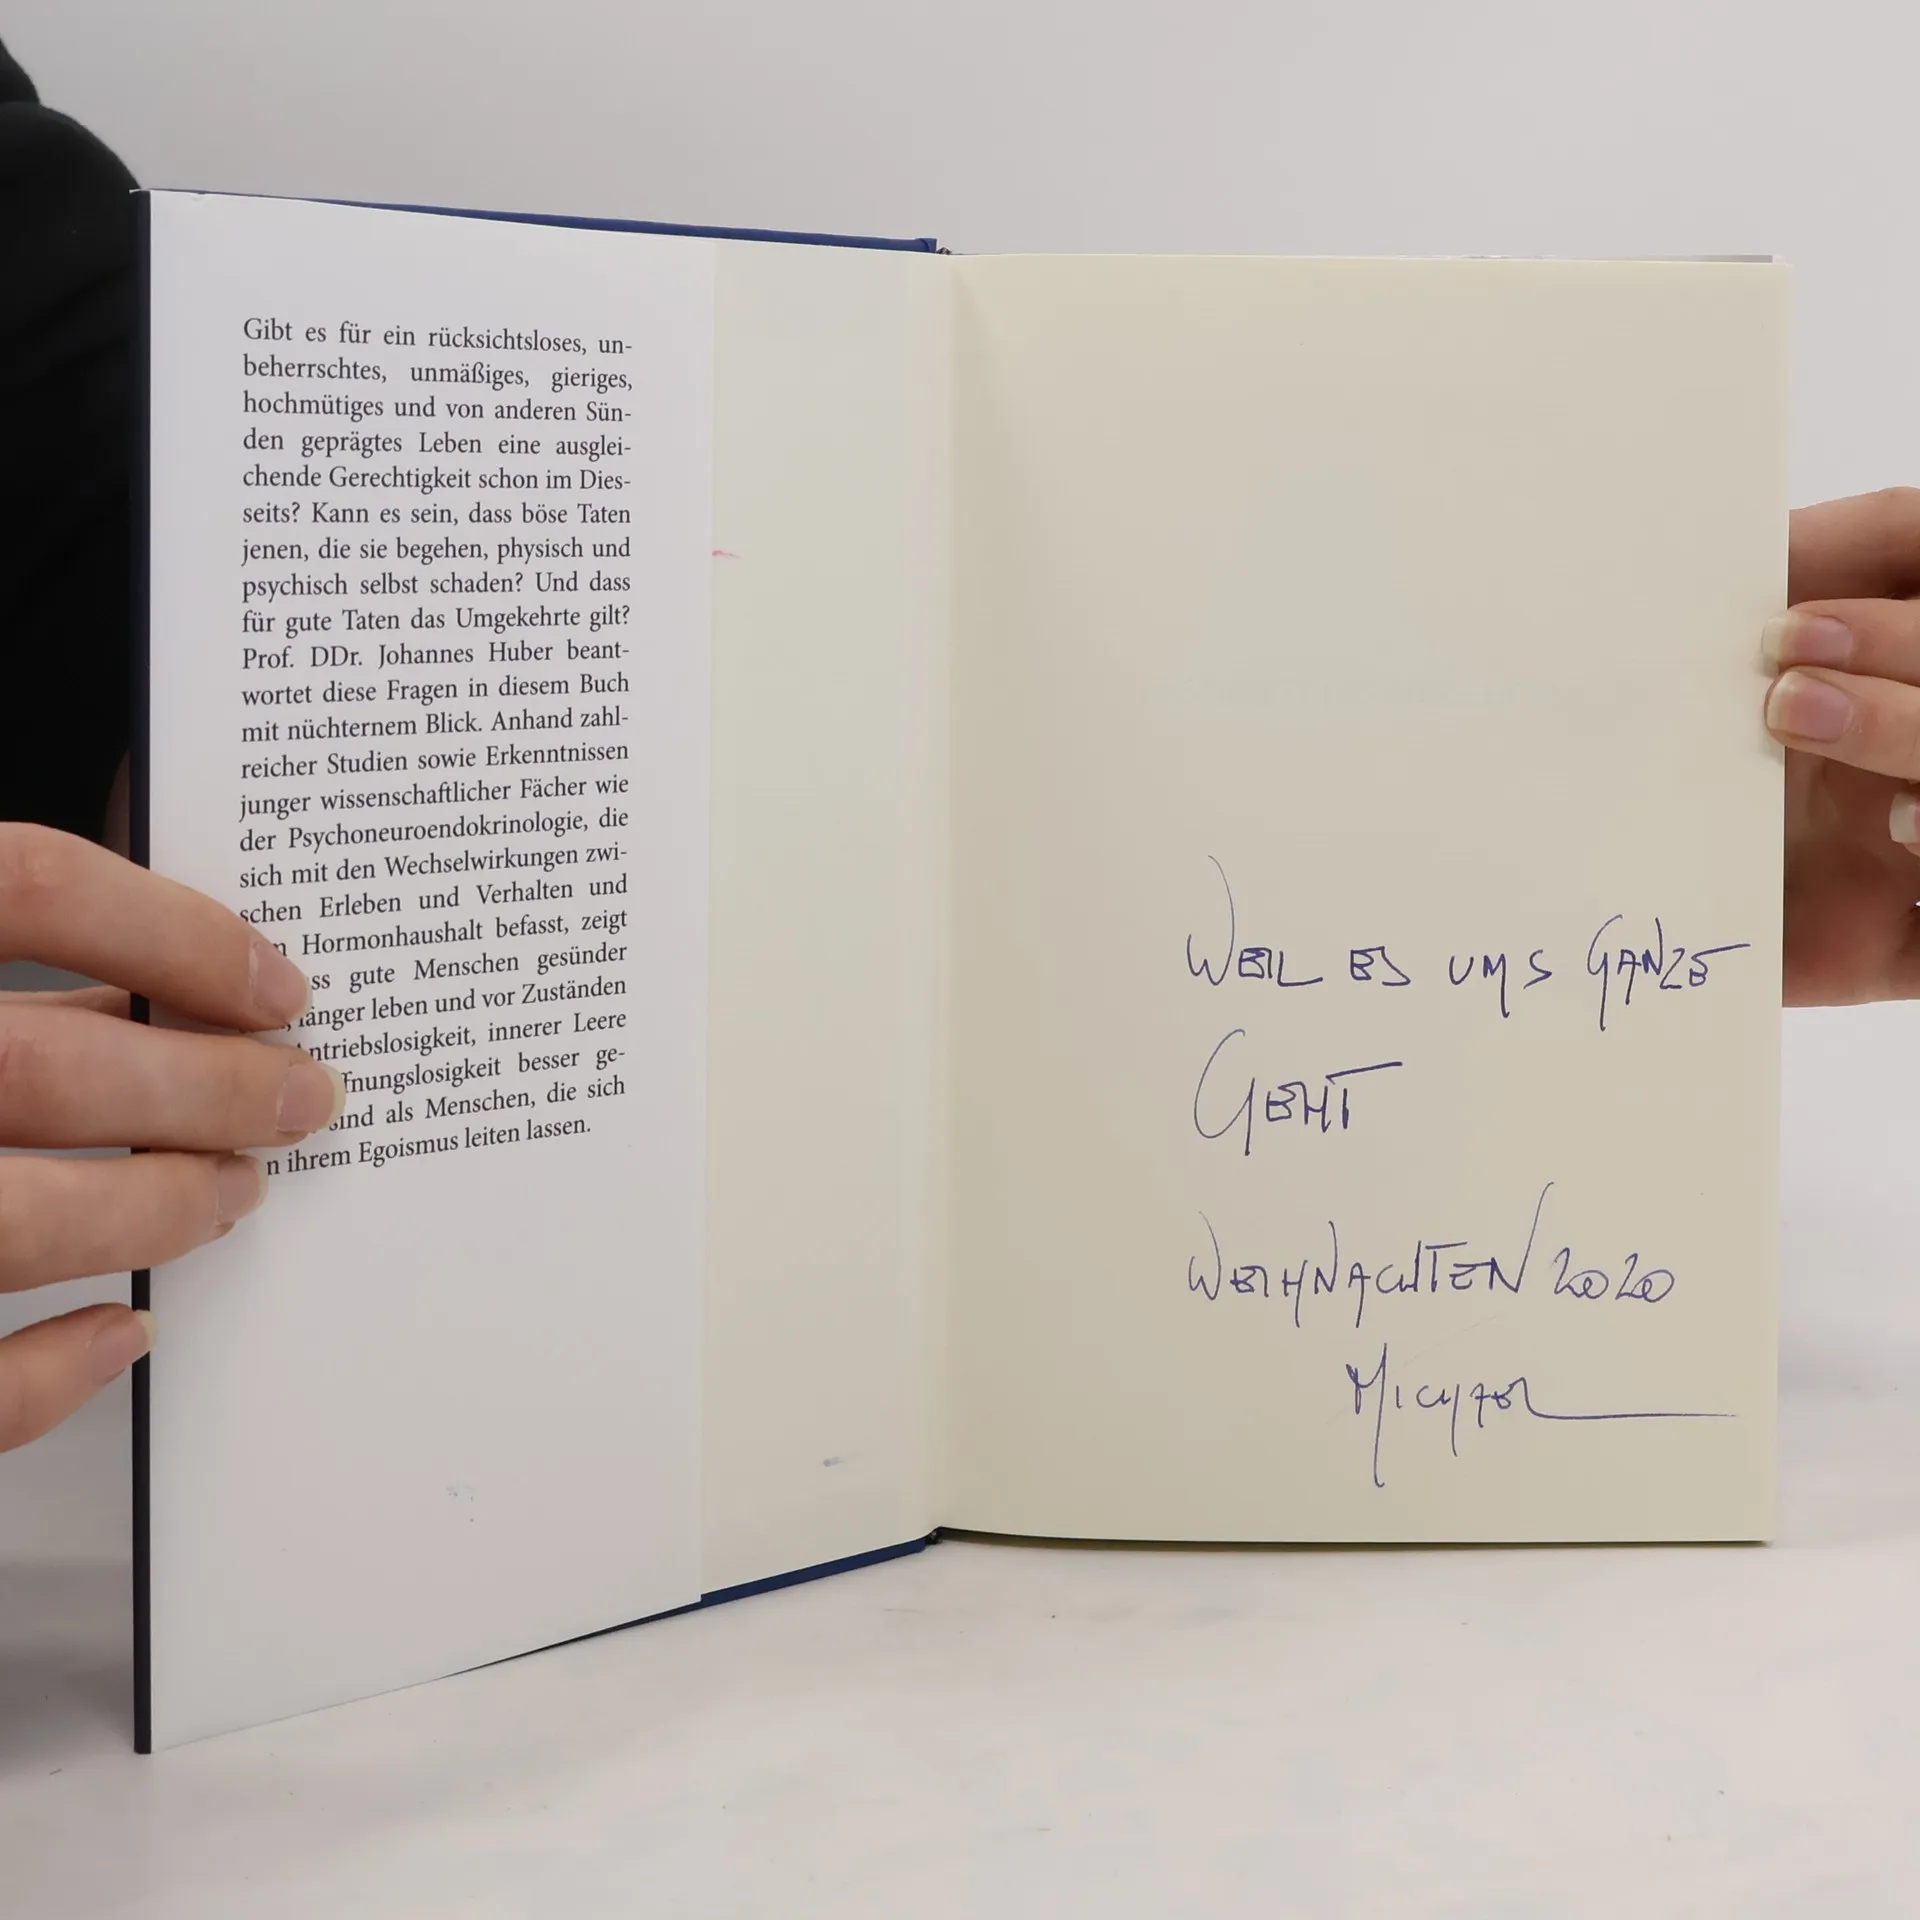 Gibt es für ein rücksichtsloses, un-
beherrschtes, unmäßiges, gieriges,
hochmütiges und von anderen Sün-
den geprägtes Leben eine ausglei-
chende Gerechtigkeit schon im Dies-
seits? Kann es sein, dass böse Taten
jenen, die sie begehen, physisch und
psychisch selbst schaden? Und dass
für gute Taten das Umgekehrte gilt?
Prof. DDr. Johannes Huber beant-
wortet diese Fragen in diesem Buch
mit nüchternem Blick. Anhand zahl-
reicher Studien sowie Erkenntnissen
junger wissenschaftlicher Fächer wie
der Psychoneuroendokrinologie, die
sich mit den Wechselwirkungen zwi-
schen Erleben und Verhalten und
Hormonhaushalt befasst, zeigt
gute Menschen gesünder
länger leben und vor Zuständen
ntriebslosigkeit, innerer Leere
fnungslosigkeit besser ge-
ind als Menschen, die sich
n ihrem Egoismus leiten lassen.
WEIL ES UMS GANZE
GEHT
WEIHNACHTEN 2020
MICHAEL